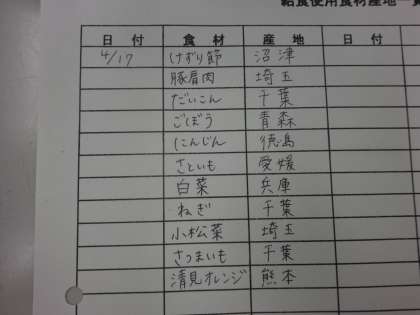 給食使用食材産地一
日 付 食 材 産 地 日 付
4/17 けずり節 沼津
豚肩肉 埼玉
だいこん 千葉
ごぼう 青森
にんじん 徳島
さといも 愛媛
白菜 兵庫
ねぎ 千葉
小松菜 埼玉
さつまいも 千葉
清見オレンジ 熊本